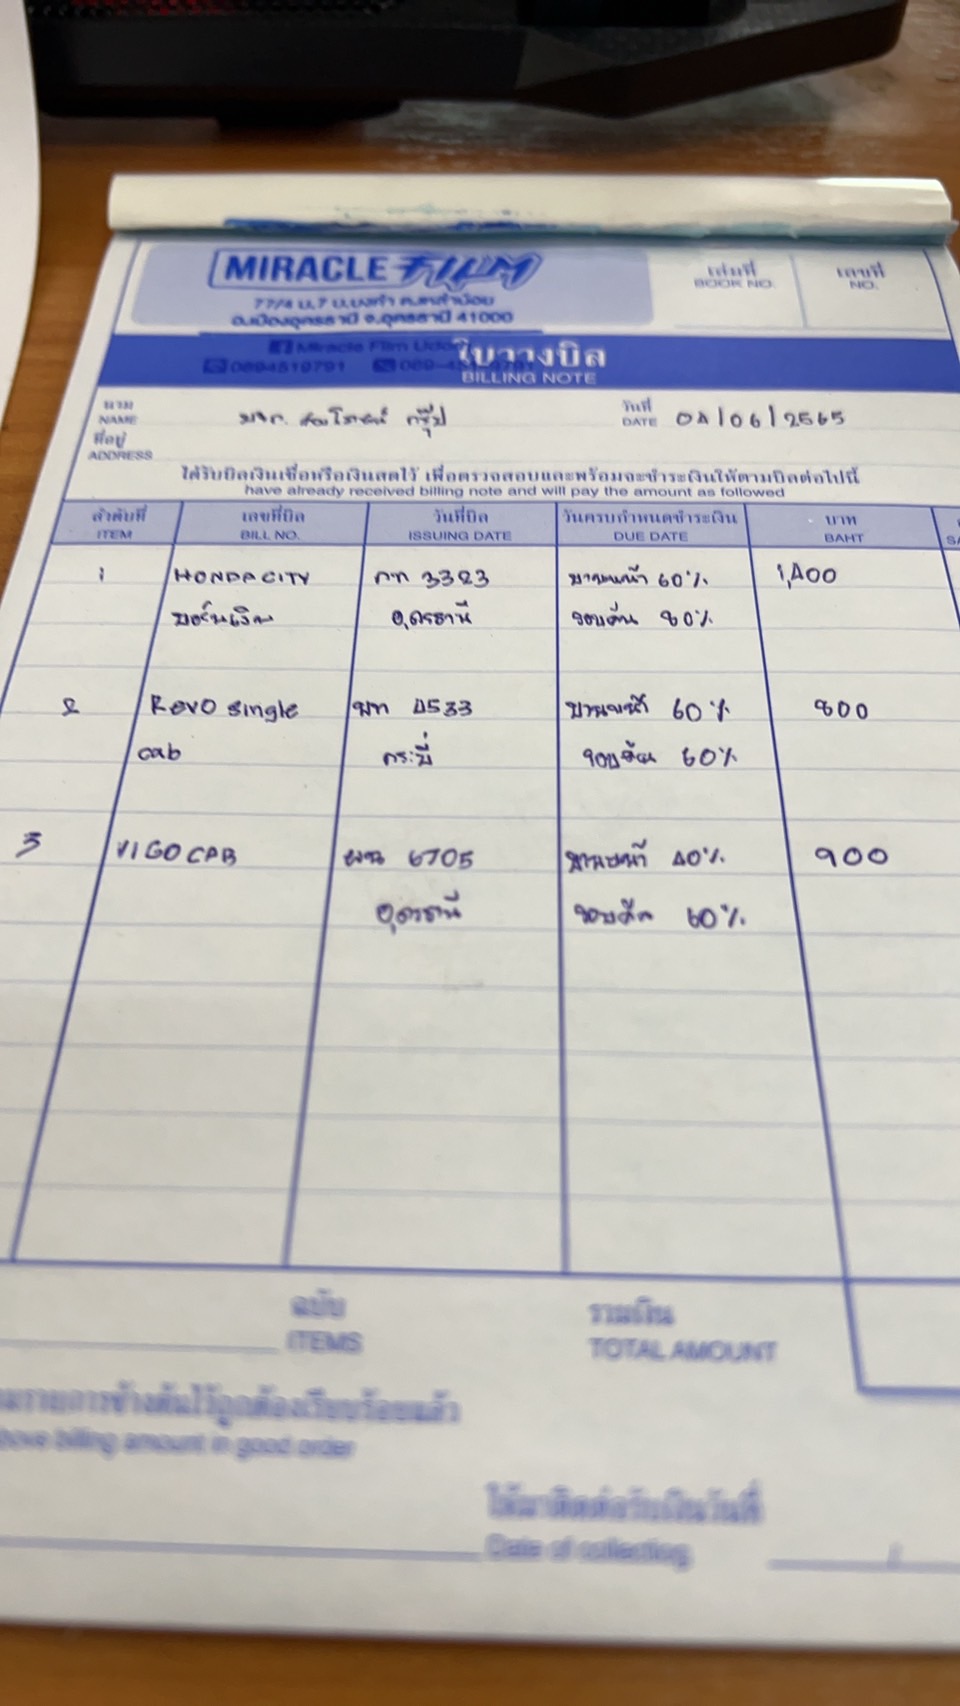 MIRACLE FILM
อ.เมืองอุดรธานี จ.อุดรธานี 41000
เล่มที่ เลขที่
BOOK NO. NO.
Miracle Film Udon
0894519791
ใบวางบิล
BILLING NOTE
นาม วันที่ 04/06/2565
NAME DATE
ที่อยู่
ADDRESS
ได้รับบิลเงินเชื่อหรือเงินสดไว้ เพื่อตรวจสอบและพร้อมจะชำระเงินให้ตามบิลต่อไปนี้
have already received billing note and will pay the amount as followed
ลำดับที่ เลขที่บิล วันที่บิล วันครบกำหนดชำระเงิน บาท
ITEM BILL NO. ISSUING DATE DUE DATE BAHT
1 HONDA CITY กท 3323 บานหน้า 60% 1,400
อุดรธานี รอบคัน 80%
2 Revo single 4533 บานหน้า 60% 800
cab กระบี่ รอบคัน 60%
3 VIGO CAB 6705 บานหน้า 40% 900
อุดรธานี รอบคัน 60%
ฉบับ รวมเงิน
ITEMS TOTAL AMOUNT
รายการข้างต้นไว้ถูกต้องเรียบร้อยแล้ว
billing amount in good order
ให้มาติดต่อรับเงินวันที่
Date of collecting